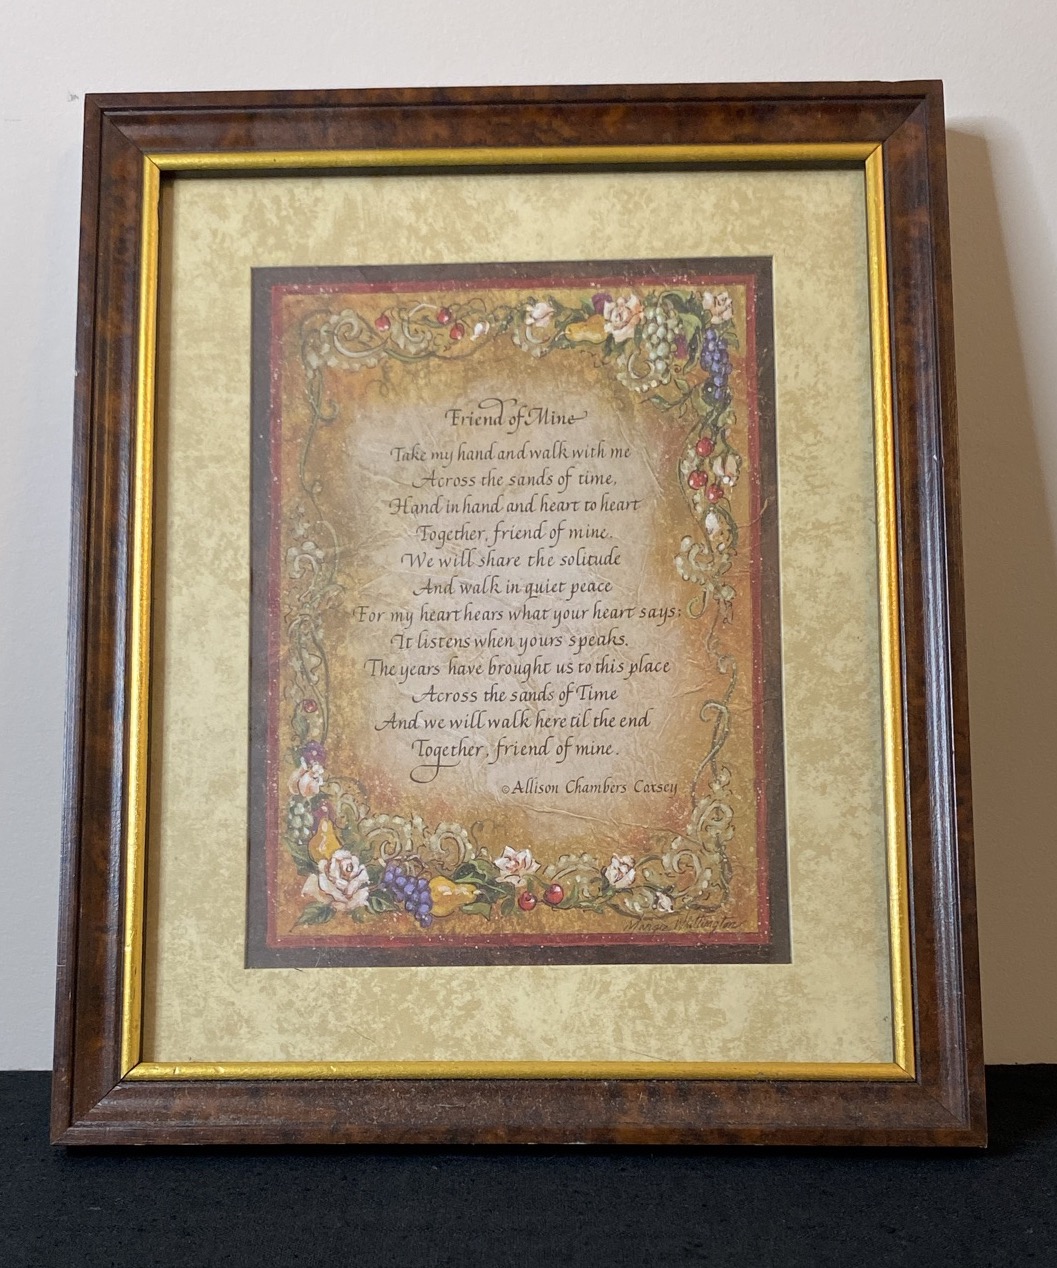 Friend of Mine
Take my hand and walk with me
Across the sands of time,
Hand in hand and heart to heart
Together, friend of mine.
We will share the solitude
And walk in quiet peace
For my heart hears what your heart says:
It listens when yours speaks.
The years have brought us to this place
Across the sands of Time
And we will walk here til the end
Together, friend of mine.
©Allison Chambers Coxsey
Margie Whittington